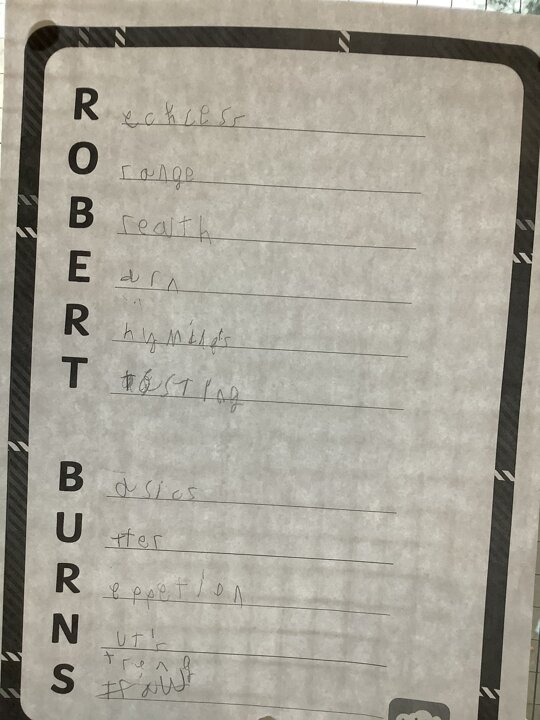 R eckless
O range
B reath
E arn
R hymings
T esting
B asics
U tter
R eppetion
N ut's
S treng